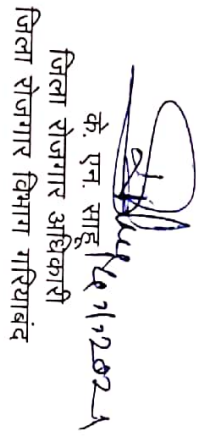 के. एन. साहू
जिला रोजगार अधिकारी
जिला रोजगार विभाग गरियाबंद